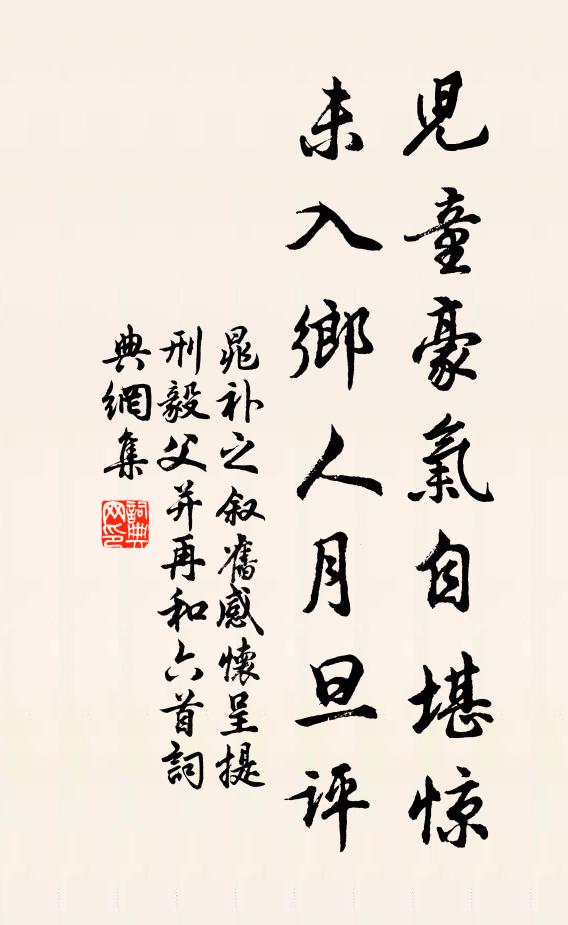 兒童豪氣自堪惊
未入鄉人月旦评
晁补之叙舊感懷呈提
刑毅父并再和六首詞
典網集
詞典网印